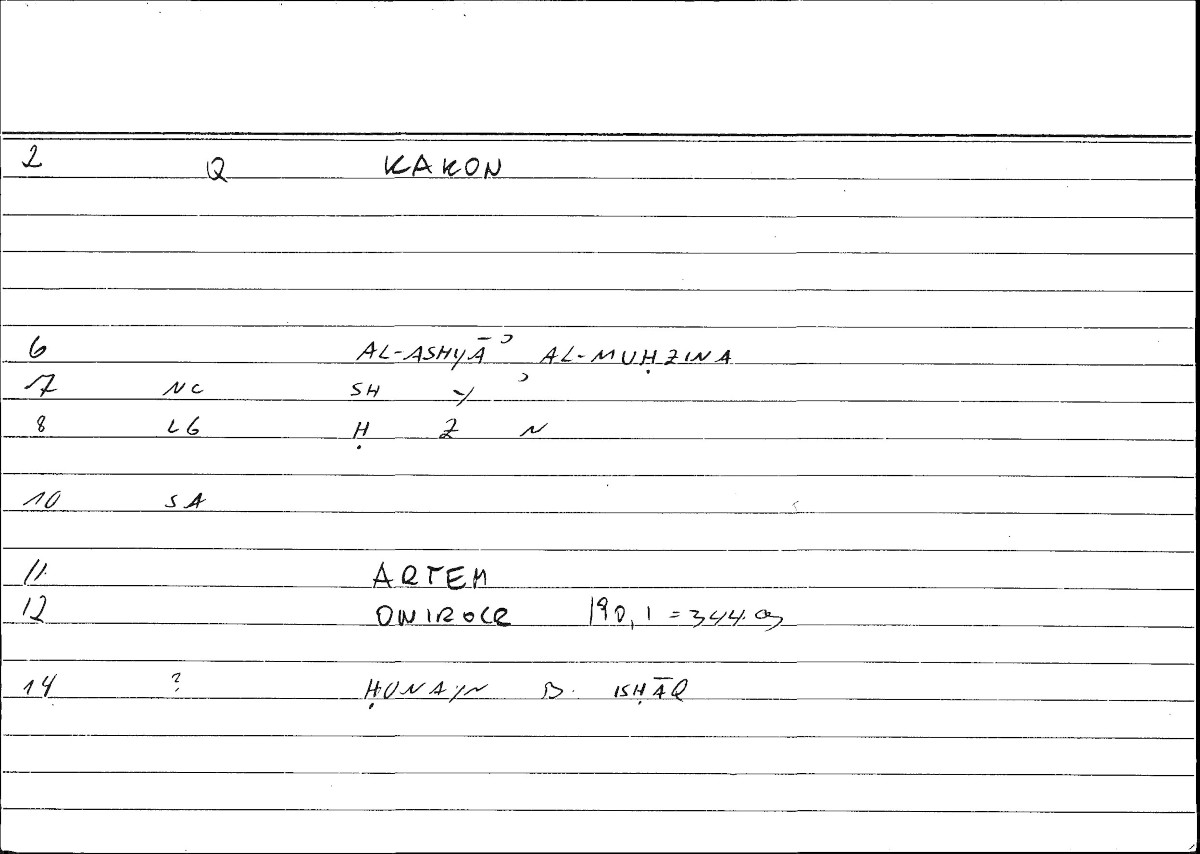 2 Q KAKON
6 AL-ASHYĀʾ AL-MUḤZINA
7 NC SH Y ʾ
8 LG Ḥ Z N
10 SA
11 ARTEM
12 ONIROCR 190,1 = 344.
14 ? ḤUNAYN B. ISḤĀQ